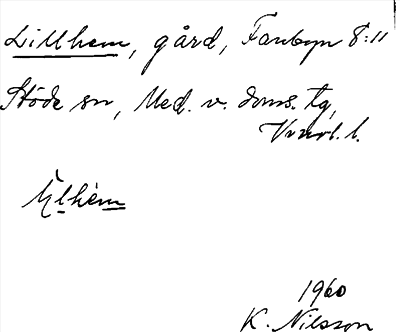 Lillhem, gård, Fanbyn 8:11
Stöde sn, Med. v. doms. tg,
l.
1960
K. Nilsson